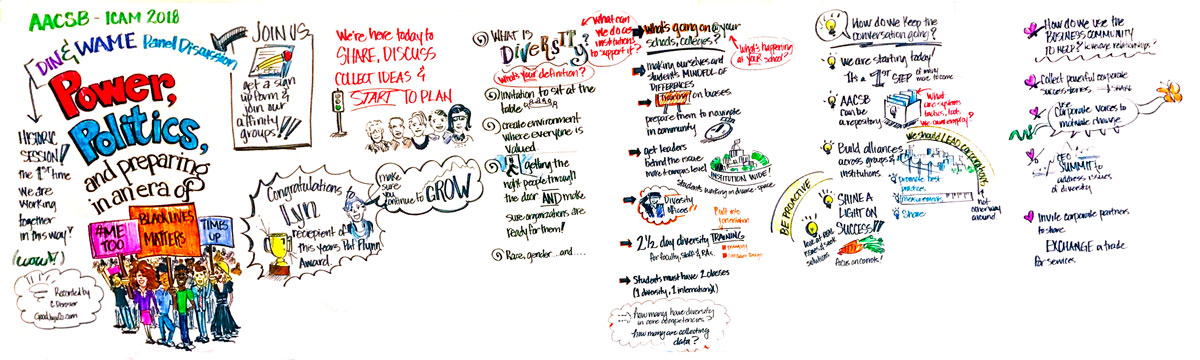 AACSB - ICAM 2018
DIN & WAME Panel Discussion
Power,
Politics,
and preparing
in an era of
HISTORIC
SESSION!!
The 1st time
we are
working
together
in this way!
(wow!)
#ME
TOO
BLACK LIVES
MATTERS
TIMES
UP
Recorded by
JOIN US
get a sign
up form &
join our
affinity
groups!!!
We're here today to
SHARE, DISCUSS
COLLECT IDEAS &
START TO PLAN
Congratulations to
Lyn
recipient of
this years Pat Flynn
Award.
make
sure
we
continue to GROW
WHAT IS
DIVERSITY?
What's your definition?
what can
we do as
institutions
to support it?
Invitation to sit at the
table
create environment
where everyone is
valued
getting the
right people through
the door AND make
sure organizations are
ready for them!
Race, gender...and....
What's going on @ your
schools, colleges?
What's happening
at YOUR school?
making ourselves and
students MINDFUL OF
DIFFERENCES
Training on biases
prepare them to navigate
in community
get leaders
behind the issue
make campus level
INSTITUTION WIDE!
Students working in diverse space
Diversity
offices!
Built into
orientation
2 1/2 day diversity TRAINING
for faculty, staff &
Students must have 2 classes
(1 diversity, 1 international)
how many have diversity
in core competencies?
how many are collecting
data?
How do we keep the
conversation going?
We are starting today!
It's a 1st STEP of many
more to come
AACSB
can be
a repository
What
are systems
tactics, tools
we can employ?
Build alliances
across groups &
institutions
We should LEAD corporations
not
other way
around
promote best
practices
measurements
Share
BE PROACTIVE
look at REAL
issues & seek
solutions
SHINE A
LIGHT ON
SUCCESS!!
focus on carrots!
How do we use the
BUSINESS COMMUNITY
TO HELP?
relationships?
Collect powerful corporate
success stories
& SHARE
use
Corporate voices to
motivate change
CEO
SUMMIT to
address issues
of diversity
Invite corporate partners
to share
EXCHANGE a trade
for services.